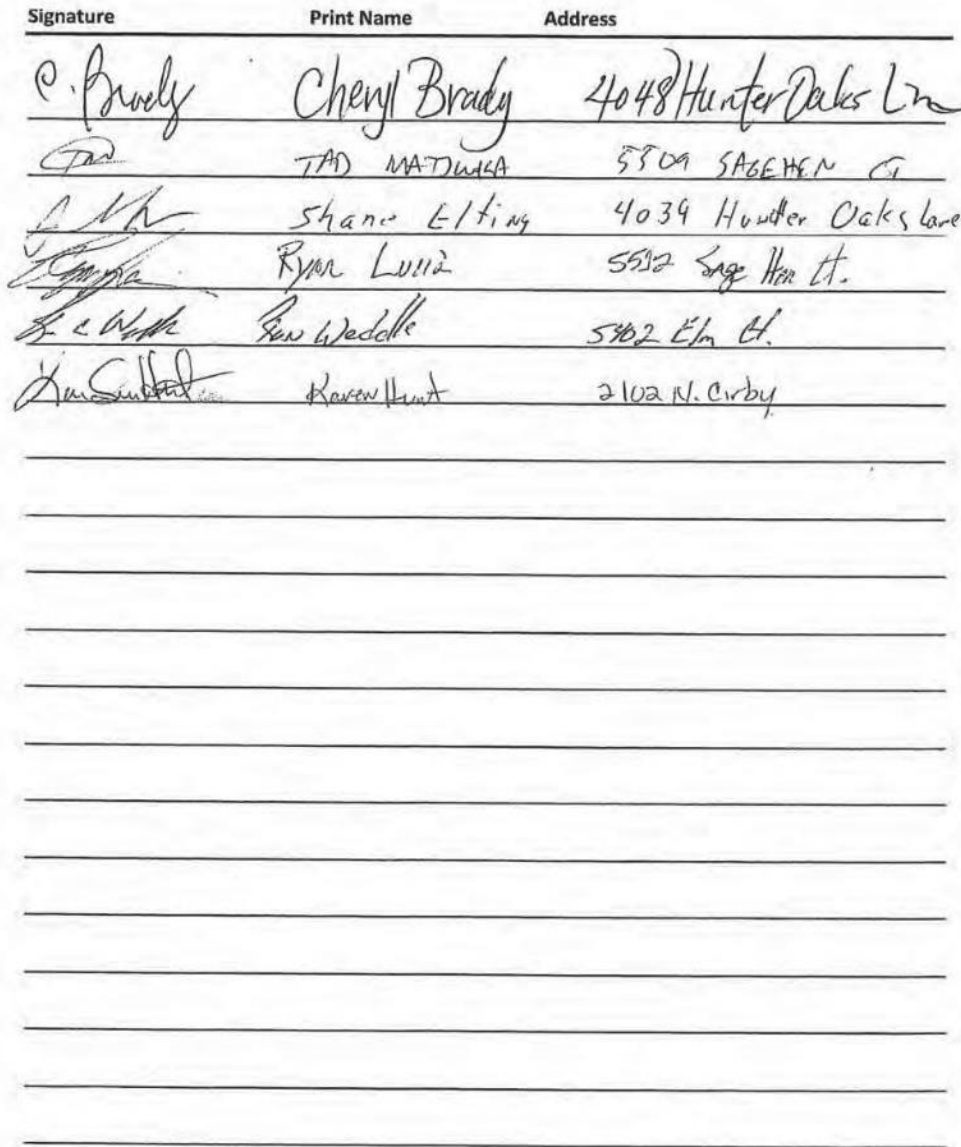 Signature Print Name Address
C. Brady Cheryl Brady 4048 Hunter Oaks Ln
TAD 5509 SAGEHEN CT
Shane Elting 4034 Hunter Oaks Lane
Ryan 5512 Sage Hen Ct.
Weddle 5402 Elm Ct.
Karen Hunt 2102 N. Cirby